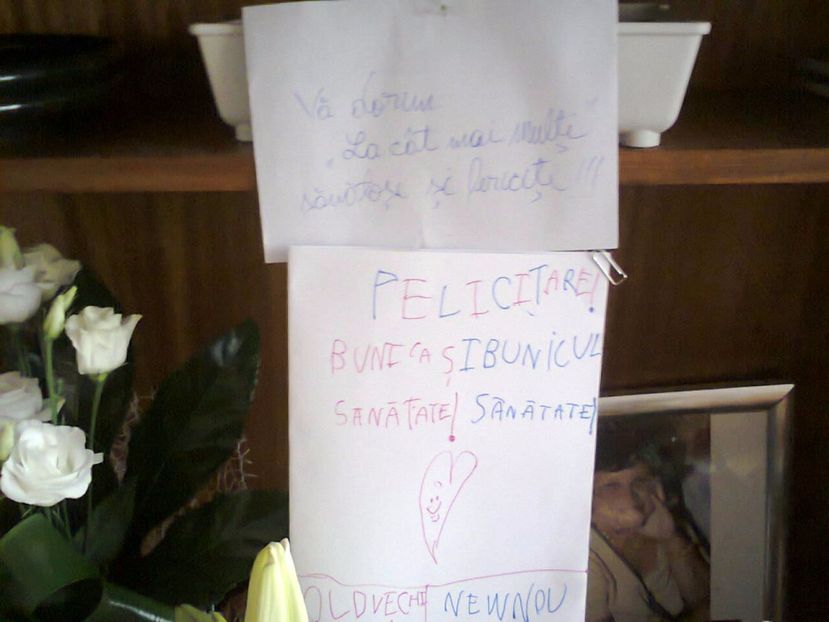 Vă dorim
„La cât mai multe”
sănătoşe şi fericite !!!
PELICIȚARE!
BUNICA ȘI BUNICUL
SANĂȚATE! SĂNĂTATE!
OLDVECHI NEWNOU